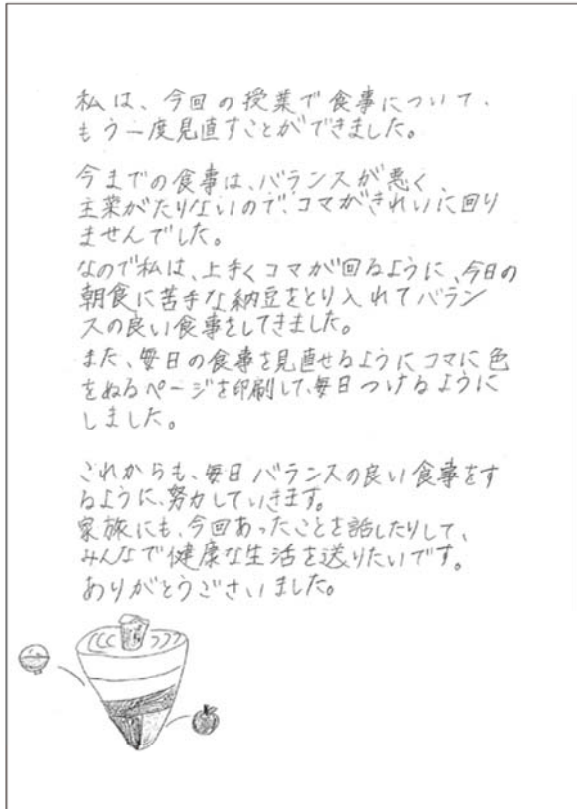 私は、今回の授業で食事について、
もう一度見直すことができました。
今までの食事は、バランスが悪く、
主菜がたりないので、コマがきれいに回り
ませんでした。
なので私は、上手くコマが回るように、今日の
朝食に苦手な納豆をとり入れてバラン
スの良い食事をしてきました。
また、毎日の食事を見直せるようにコマに色
をぬるページを印刷して、毎日つけるように
しました。
これからも、毎日バランスの良い食事をす
るように、努力していきます。
家族にも、今回あったことを話したりして、
みんなで健康な生活を送りたいです。
ありがとうございました。